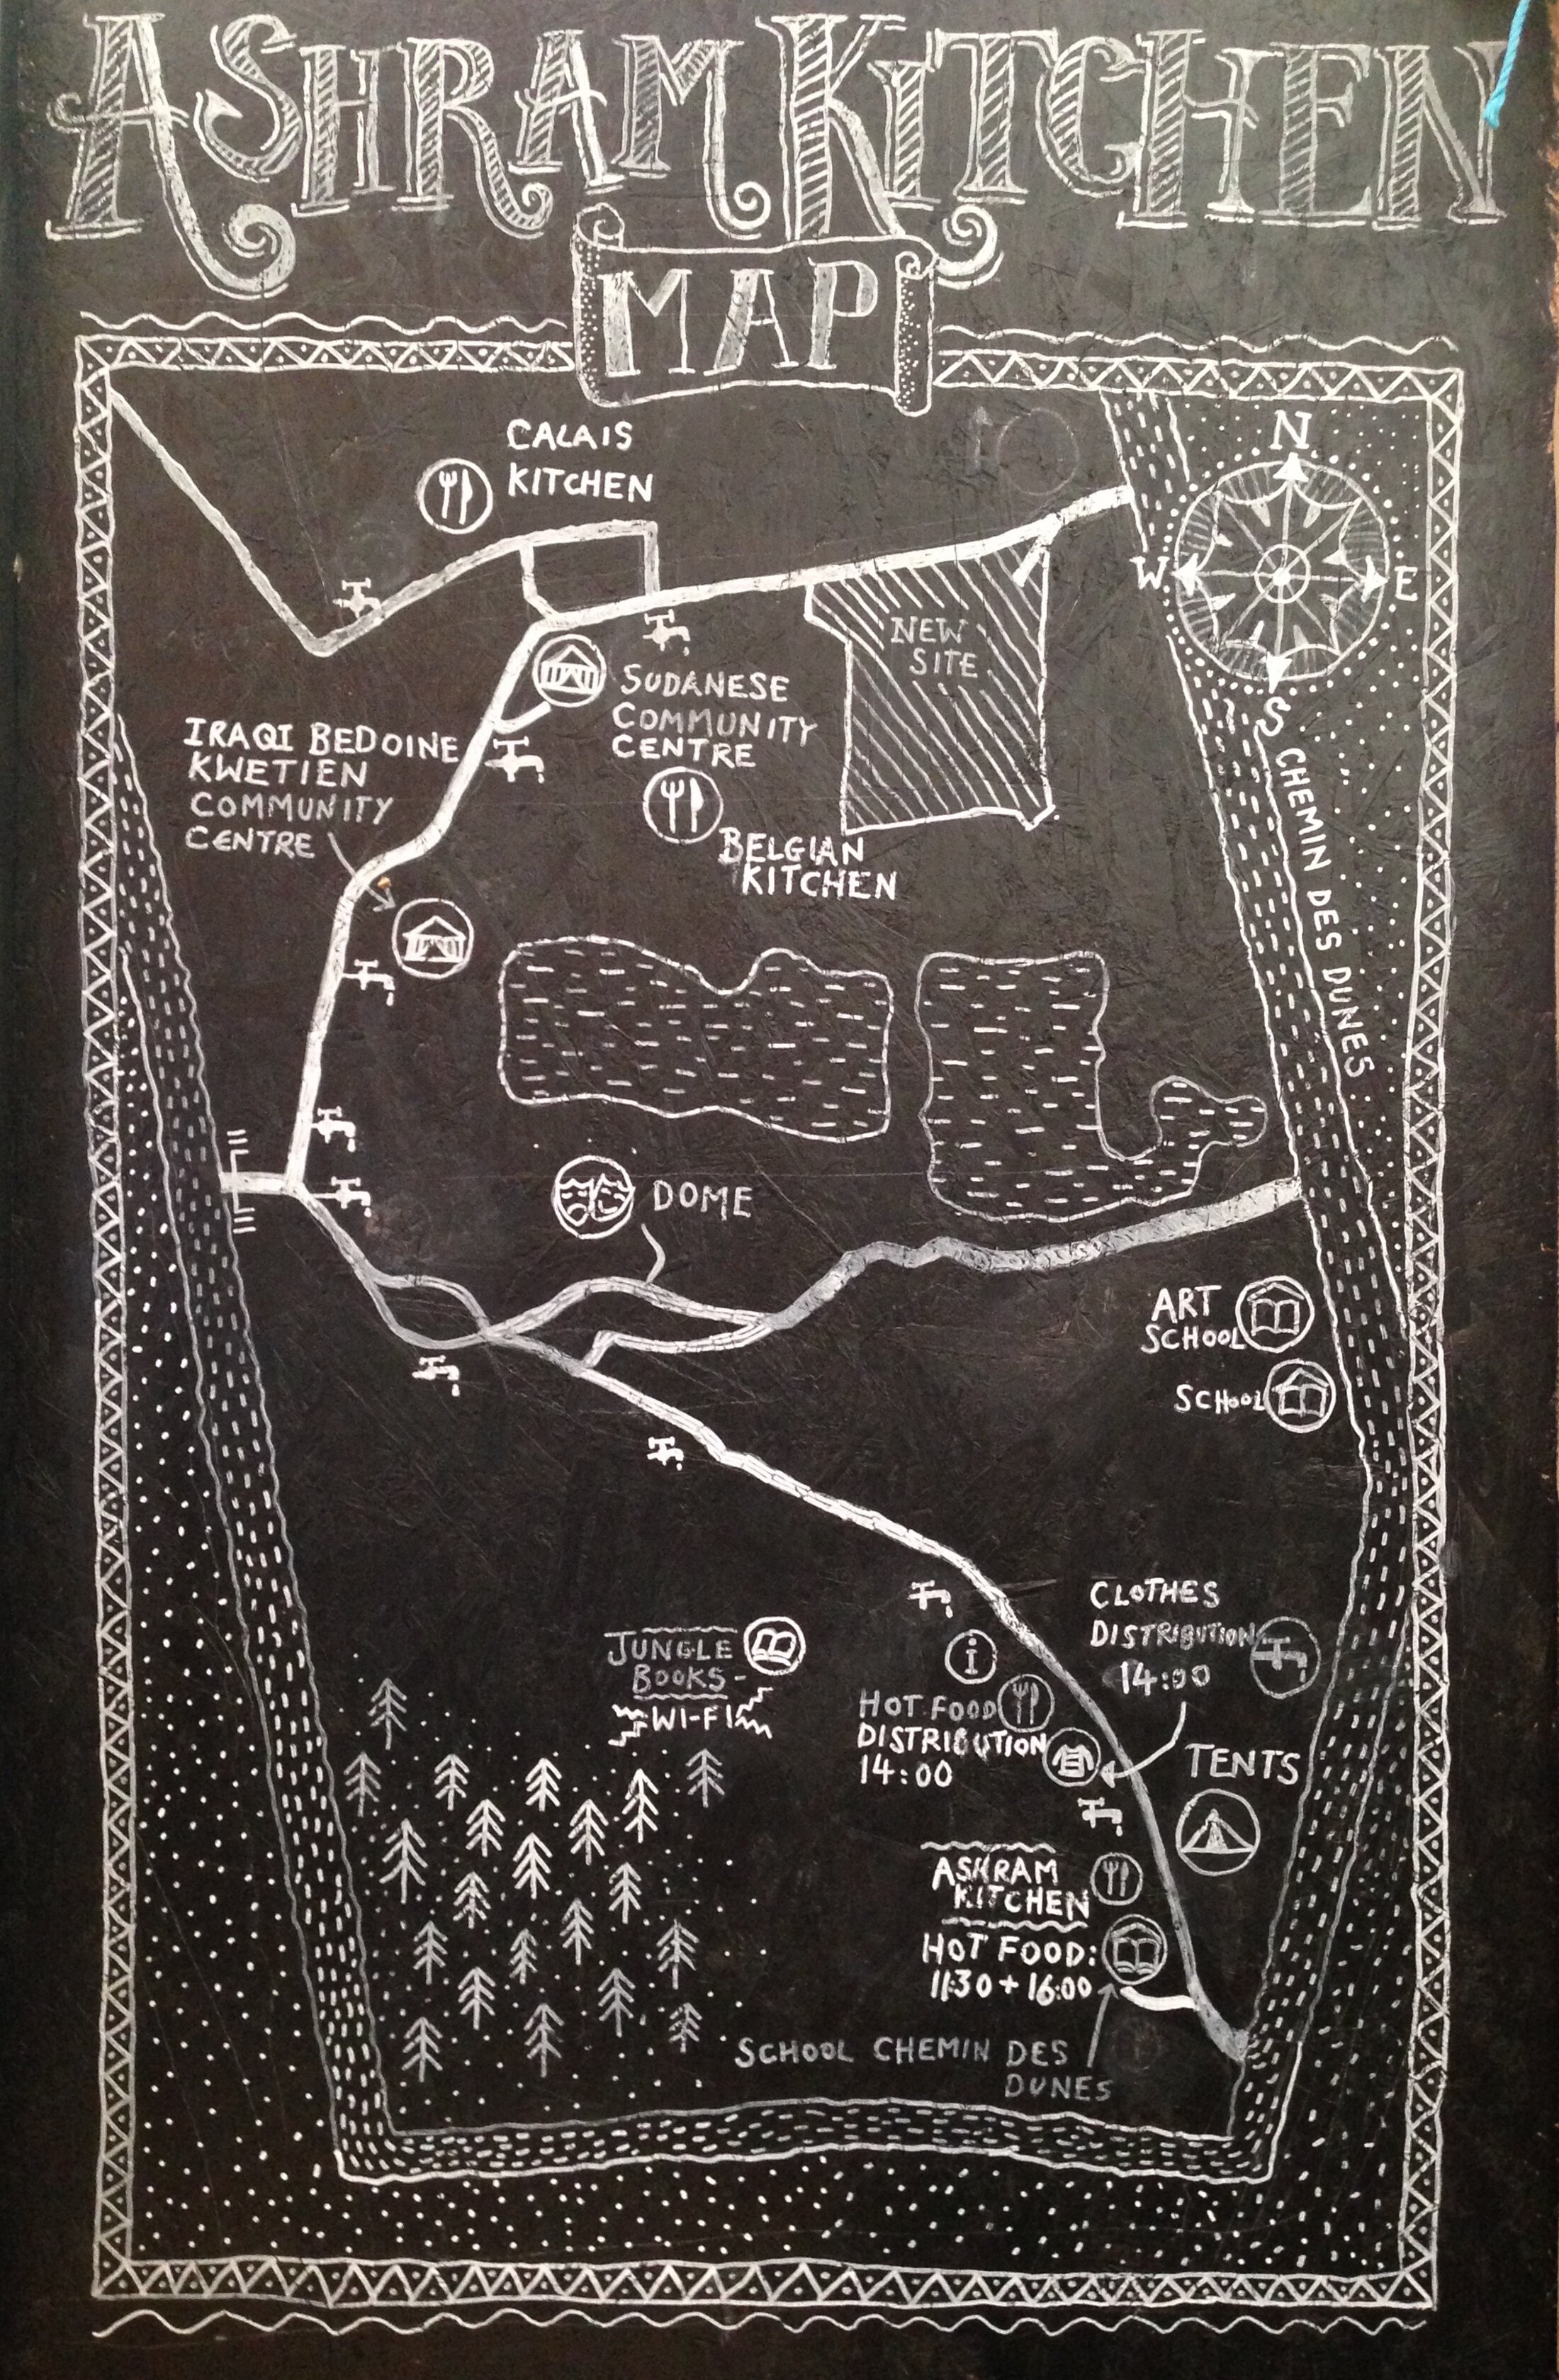 ASHRAM KITCHEN
MAP
N
W
E
S
CALAIS
KITCHEN
NEW
SITE
SUDANESE
COMMUNITY
CENTRE
IRAQI BEDOINE
KWETIEN
COMMUNITY
CENTRE
BELGIAN
KITCHEN
CHEMIN DES DUNES
DOME
ART
SCHOOL
SCHOOL
CLOTHES
DISTRIBUTION
14:00
JUNGLE
BOOKS-
WI-FI
i
HOT FOOD
DISTRIBUTION
14:00
TENTS
ASHRAM
KITCHEN
HOT FOOD:
11:30 + 16:00
SCHOOL CHEMIN DES
DUNES